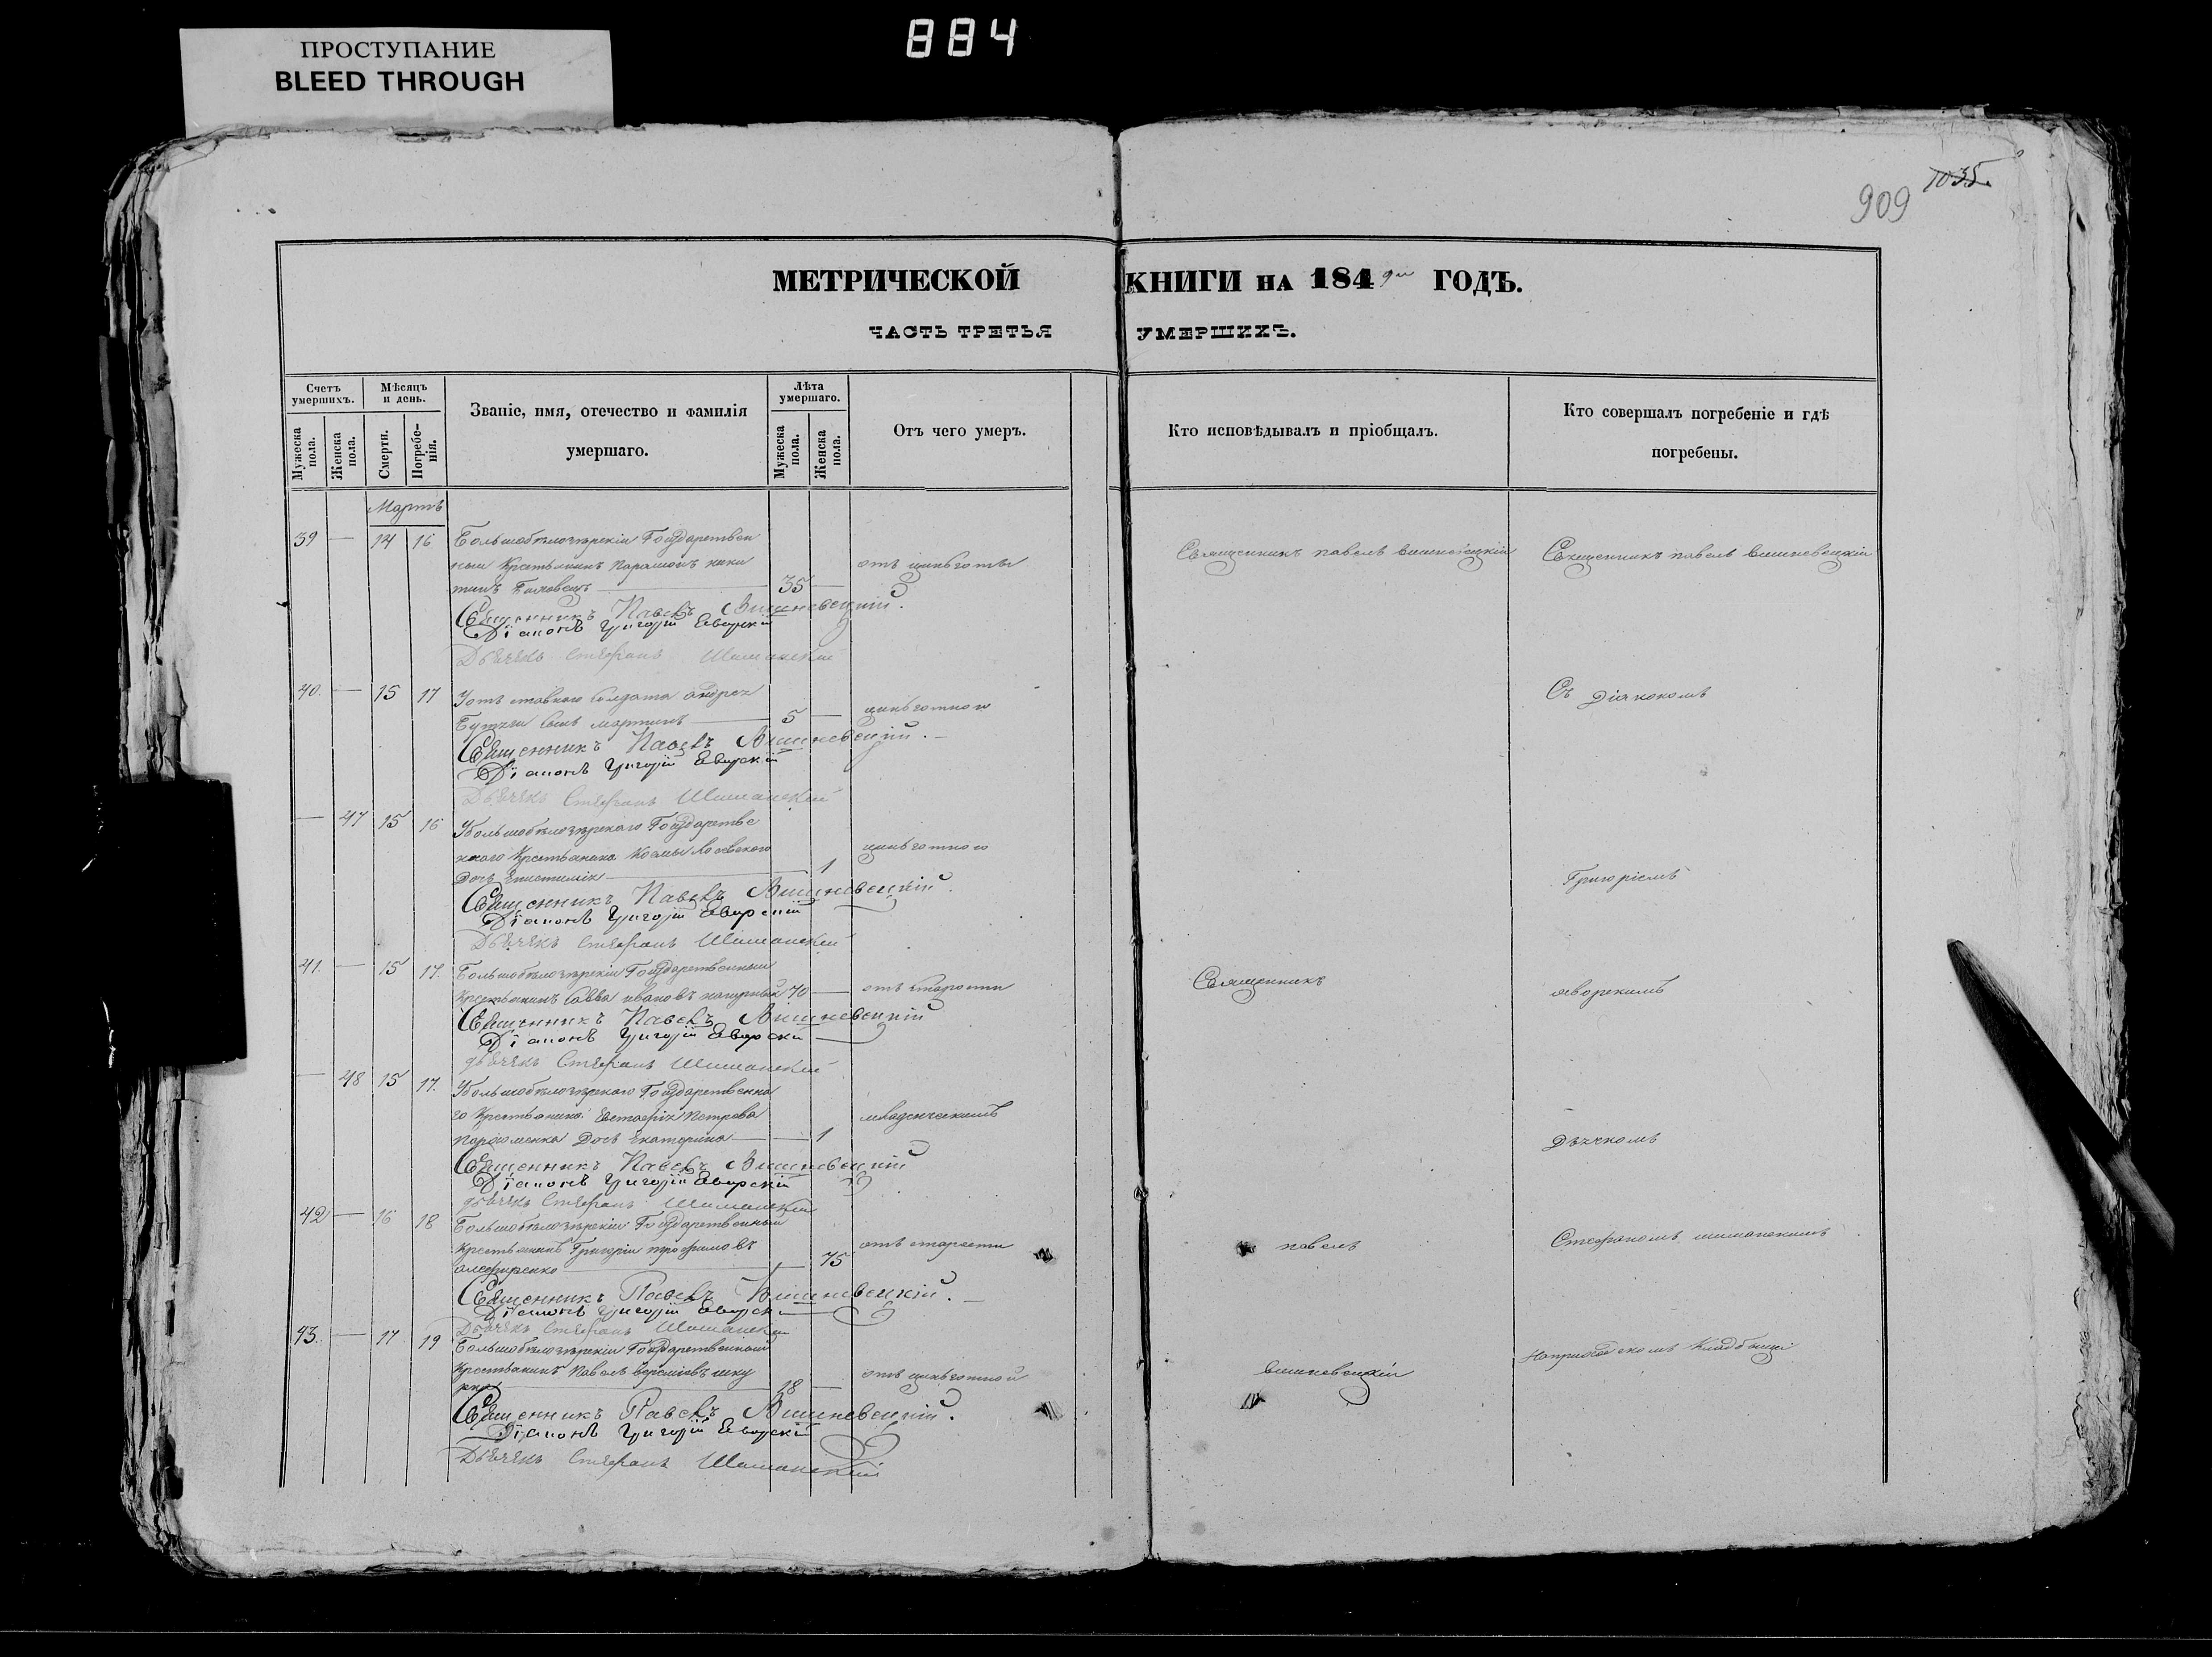 ПРОСТУПАНИЕ
BLEED THROUGH
884
1035.
909
МЕТРИЧЕСКОЙ КНИГИ НА 1849 ГОДЪ.
ЧАСТЬ ТРЕТЬЯ УМЕРШИХЪ.
Счетъ умершихъ.
Мѣсяцъ и день.
Званіе, имя, отечество и фамилія умершаго.
Лѣта умершаго.
Отъ чего умеръ.
Кто исповѣдывалъ и пріобщалъ.
Кто совершалъ погребеніе и гдѣ погребены.
Мужеска пола.
Женска пола.
Смерти.
Погребе-
нія.
Мужеска пола.
Женска пола.
Мартъ
39 — 14 16 Большобѣлозѣрскій Государствен
ный Крестьянинъ Парамонъ ники отъ цынготы Священникъ павелъ вишневецкій Священникъ павелъ вишневецкій
тинъ 35 —
Священникъ Павелъ Вишневецкій.
Діаконъ Григорій Яворскій
Дьячекъ Стефанъ Шиманскій
40. — 15 17 У отставного солдата андрея Съ Діакономъ
сынъ мартинъ 5 — цынготною
Священникъ Павелъ Вишневецкій.
Діаконъ Григорій Яворскій
Дьячекъ Стефанъ Шиманскій
— 47 15 16 У Большобѣлозѣрскаго Государстве
ннаго Крестьянина Космы цынготною
Дочь Епистимія 1 Григоріемъ
Священникъ Павелъ Вишневецкій.
Діаконъ Григорій Яворскій
Дьячекъ Стефанъ Шиманскій
41. — 15 17. Большобѣлозѣрскій Государственный Священникъ
Крестьянинъ Савва ивановъ 70 — отъ старости яворскимъ
Священникъ Павелъ Вишневецкій
Діаконъ Григорій Яворскій
дьячекъ Стефанъ Шиманскій
— 48 15 17. У Большобѣлозѣрскаго Государственна
го Крестьянина Евстафія Петрова младенческимъ
Дочь Екатерина — 1 Дьячкомъ
Священникъ Павелъ Вишневецкій
Діаконъ Григорій Яворскій
дьячекъ Стефанъ Шиманскій
42 — 16 18 Большобѣлозѣрскій Государственный Стефаномъ шиманскимъ
Крестьянинъ Григорій трофимовъ отъ старости павелъ
алефиренко — 75
Священникъ Павелъ Вишневецкій.
Діаконъ Григорій Яворскій
Дьячекъ Стефанъ Шиманскій
43. — 17 19 Большобѣлозѣрскій Государственный На приходскомъ Кладбищѣ
Крестьянинъ Павелъ отъ цынготной вишневецкій
28 —
Священникъ Павелъ Вишневецкій.
Діаконъ Григорій Яворскій
Дьячекъ Стефанъ Шиманскій